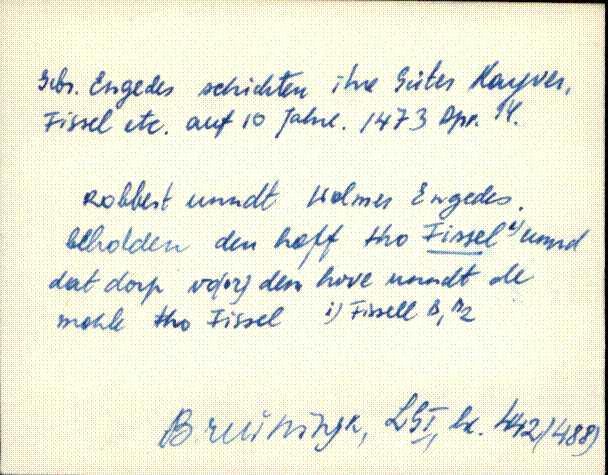 Gebr. Engedes schichten ihre Güter Kayver,
Fissel etc. auf 10 Jahre. 1473 Apr. 14.
Robbert unndt Holmer Engedes.
beholden den hoff tho Fissel 1) unnd
dat dorp vo(or) dem hove unndt de
mohle tho Fissel 1) Fissell B, B2
Bruiningk, LGI, nr. 442 (488)